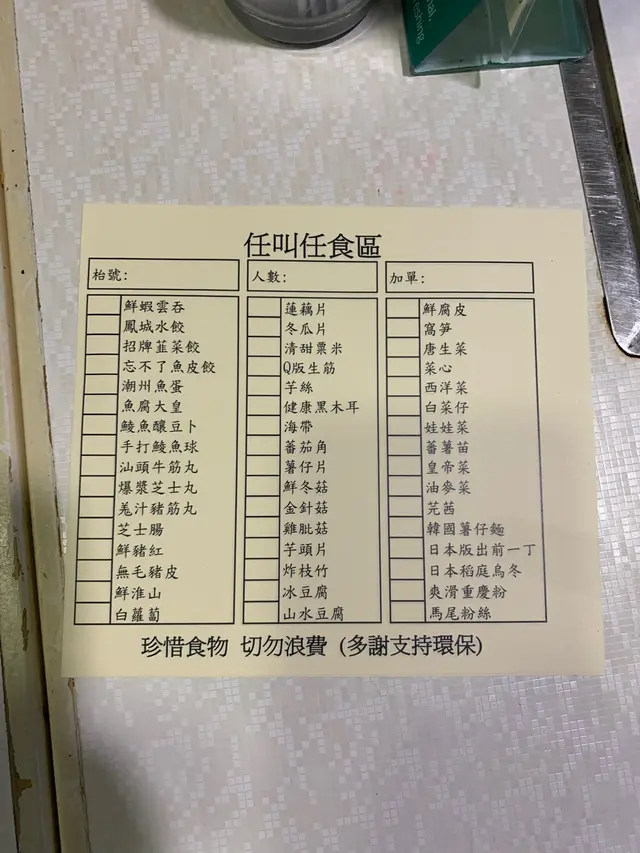 al,
eshing
任叫任食區
枱號：
人數：
加單：
鮮蝦雲吞
鳳城水餃
招牌韮菜餃
忘不了魚皮餃
潮州魚蛋
魚腐大皇
鯪魚釀豆卜
手打鯪魚球
汕頭牛筋丸
爆漿芝士丸
羗汁豬筋丸
芝士腸
鮮豬紅
無毛豬皮
鮮淮山
白蘿蔔
蓮藕片
冬瓜片
清甜粟米
Q版生筋
芋絲
健康黑木耳
海帶
蕃茄角
薯仔片
鮮冬菇
金針菇
雞肶菇
芋頭片
炸枝竹
冰豆腐
山水豆腐
鮮腐皮
窩笋
唐生菜
菜心
西洋菜
白菜仔
娃娃菜
蕃薯苗
皇帝菜
油麥菜
芫茜
韓國薯仔麵
日本版出前一丁
日本稻庭烏冬
爽滑重慶粉
馬尾粉絲
珍惜食物 切勿浪費 (多謝支持環保)